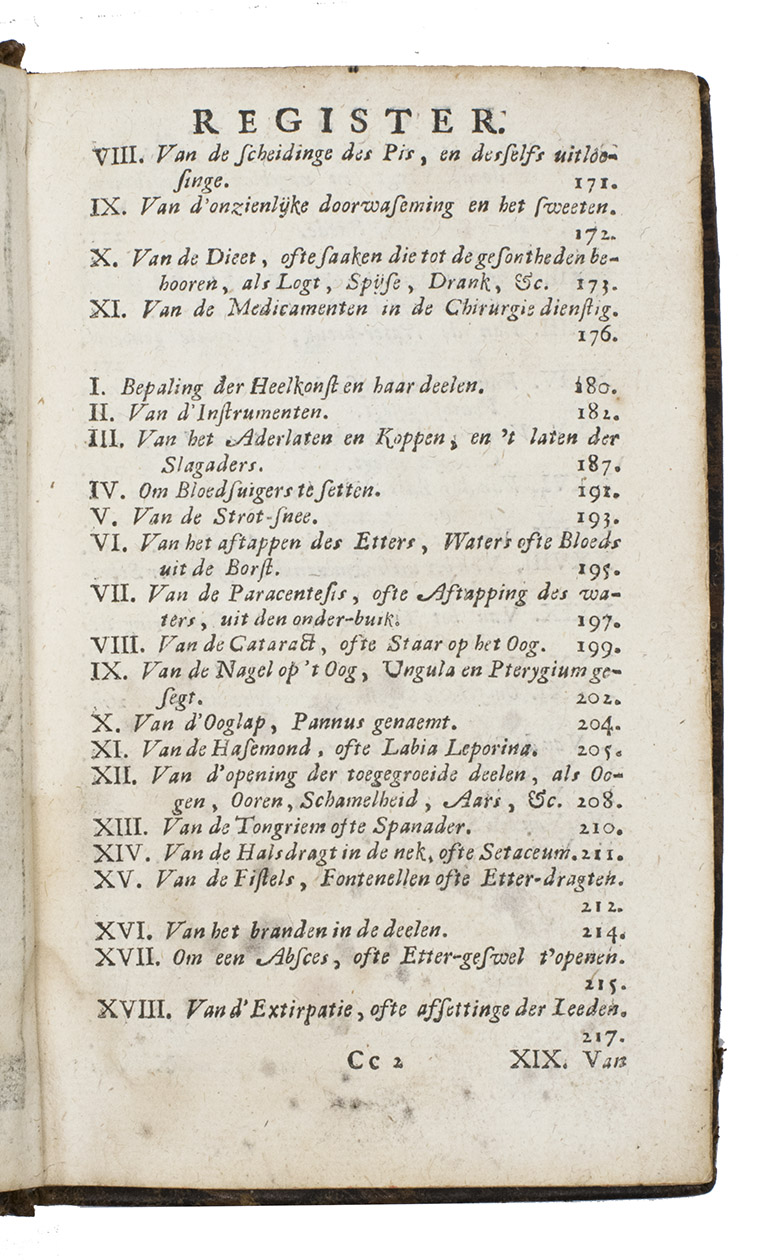 REGISTER.
VIII. Van de ſcheidinge des Pis, en desſelfs uitloo-
ſinge. 171.
IX. Van d'onzienlijke doorwaſeming en het ſweeten.
172.
X. Van de Dieet, ofte ſaaken die tot de geſontheden be-
hooren, als Logt, Spijſe, Drank, &c. 173.
XI. Van de Medicamenten in de Chirurgie dienſtig.
176.
I. Bepaling der Heelkonſt en haar deelen. 180.
II. Van d'Inſtrumenten. 182.
III. Van het Aderlaten en Koppen, en 't laten der
Slagaders. 187.
IV. Om Bloedſuigers te ſetten. 191.
V. Van de Strot-ſnee. 193.
VI. Van het aftappen des Etters, Waters ofte Bloeds
uit de Borſt. 195.
VII. Van de Paracenteſis, ofte Aftapping des wa-
ters, uit den onder-buik. 197.
VIII. Van de Cataract, ofte Staar op het Oog. 199.
IX. Van de Nagel op 't Oog, Ungula en Pterygium ge-
ſegt. 202.
X. Van d'Ooglap, Pannus genaemt. 204.
XI. Van de Haſemond, ofte Labia Leporina. 205.
XII. Van d'opening der toegegroeide deelen, als Oo-
gen, Ooren, Schamelheid, Aars, &c. 208.
XIII. Van de Tongriem ofte Spanader. 210.
XIV. Van de Halsdragt in de nek, ofte Setaceum. 211.
XV. Van de Fiſtels, Fontenellen ofte Etter-dragten.
212.
XVI. Van het branden in de deelen. 214.
XVII. Om een Abſces, ofte Etter-geſwel t'openen.
215.
XVIII. Van d'Extirpatie, ofte afſettinge der Leeden.
217.
Cc 2 XIX. Van